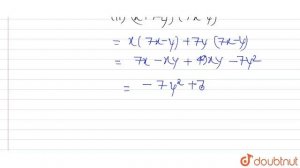 (ii) (x+7y) (7x-y)
= x(7x-y)+7y(7x-y)
= 7x-xy+49xy-7y²
= -7y²+
doubtnut